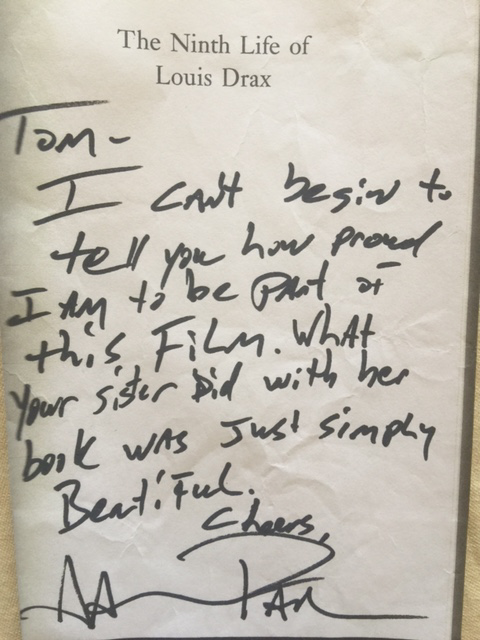 The Ninth Life of
Louis Drax
Tom-
I can't begin to
tell you how proud
I AM to be Part of
this Film. What
your sister Did with her
book was Just simply
Beautiful.
Cheers,